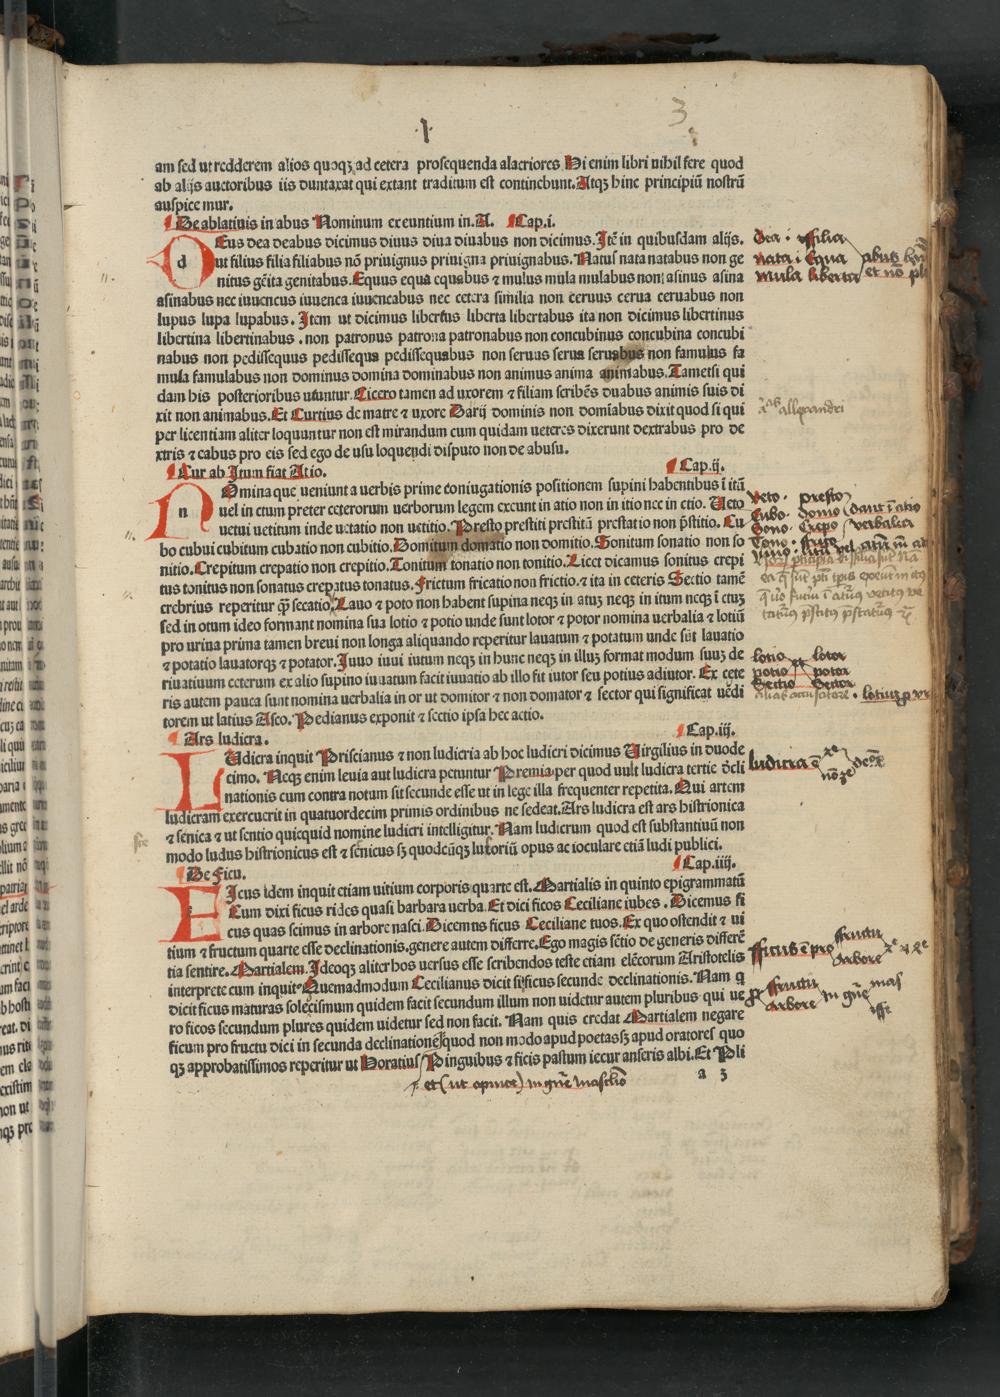 3
·I·
am sed ut redderem alios quoqꝫ ad cetera prosequenda alacriores Hi enim libri nihil fere quod
ab alijs auctoribus iis duntaxat qui extant traditum est continebunt. Atqꝫ hinc principiū nostrū
auspice mur.
De ablatiuis in abus Nominum exeuntium in. A. Cap. i.
d Eus dea deabus dicimus diuus diua diuabus non dicimus. Itē in quibusdam alijs.
ut filius filia filiabus nō priuignus priuigna priuignabus. Natus nata natabus non ge
nitus gēita genitabus. Equus equa equabus ⁊ mulus mula mulabus non: asinus asina
asinabus nec iuuencus iuuenca iuuencabus nec cetera similia non ceruus cerua ceruabus non
lupus lupa lupabus. Item ut dicimus libertus liberta libertabus ita non dicimus libertinus
libertina libertinabus. non patronus patrona patronabus non concubinus concubina concubi
nabus non pedissequus pedissequa pedissequabus non seruus serua seruabus non famulus fa
mula famulabus non dominus domina dominabus non animus anima animabus. Tametsi qui
dam his posterioribus utuntur. Cicero tamen ad uxorem ⁊ filiam scribēs duabus animis suis di
xit non animabus. Et Curtius de matre ⁊ uxore Darij dominis non domiabus dixit quod si qui
per licentiam aliter loquuntur non est mirandum cum quidam ueteres dixerunt dextrabus pro de
xtris ⁊ eabus pro eis sed ego de usu loquendi disputo non de abusu.
Cur ab Itum fiat Atio. Cap. ij.
n Omina que ueniunt a uerbis prime coniugationis positionem supini habentibus ī itū
uel in ctum preter ceterorum uerborum legem exeunt in atio non in itio nec in ctio. Ueto
uetui uetitum inde uetatio non uetitio. Presto prestiti prestitū prestatio non p̄stitio. Cu
bo cubui cubitum cubatio non cubitio. Domitum domatio non domitio. Sonitum sonatio non so
nitio. Crepitum crepatio non crepitio. Tonitum tonatio non tonitio. Licet dicamus sonitus crepi
tus tonitus non sonatus crepatus tonatus. Frictum fricatio non frictio. ⁊ ita in ceteris Sectio tamē
crebrius reperitur q̄ȝ secatio. Lauo ⁊ poto non habent supina neqꝫ in atuꝫ neqꝫ in itum neqꝫ ī ctuꝫ
sed in otum ideo formant nomina sua lotio ⁊ potio unde sunt lotor ⁊ potor nomina uerbalia ⁊ lotiū
pro urina prima tamen breui non longa aliquando reperitur lauatum ⁊ potatum unde sūt lauatio
⁊ potatio lauatorqꝫ ⁊ potator. Iuuo iuui iutum neqꝫ in hunc neqꝫ in illuꝫ format modum suuꝫ de
riuatiuum ceterum ex alio supino iuuatum facit iuuatio ab illo fit iutor seu potius adiutor. Ex cete
ris autem pauca sunt nomina uerbalia in or ut domitor ⁊ non domator ⁊ sector qui significat uēdi
torem ut latius Asco. Pedianus exponit ⁊ sectio ipsa hec actio.
Ars ludicra. Cap. iij.
L Udicra inquit Priscianus ⁊ non ludicria ab hoc ludicri dicimus Uirgilius in duode
cimo. Neqꝫ enim leuia aut ludicra petuntur Premia per quod uult ludicra tertie dcli
nationis cum contra notum sit secunde esse ut in lege illa frequenter repetita. Qui artem
ludicram exercuerit in quatuordecim primis ordinibus ne sedeat. Ars ludicra est ars histrionica
⁊ scenica ⁊ ut sentio quicquid nomine ludicri intelligitur. Nam ludicrum quod est substantiuū non
modo ludus histrionicus est ⁊ scēnicus sȝ quodcūqꝫ lusoriū opus ac ioculare etiā ludi publici.
De Ficu. Cap. iiij.
F Icus idem inquit etiam uitium corporis quarte est. Martialis in quinto epigrammatū
Cum dixi ficus rides quasi barbara uerba. Et dici ficos Ceciliane iubes. Dicemus fi
cus quas scimus in arbore nasci. Dicemus ficus Ceciliane tuos. Ex quo ostendit ⁊ ui
tium ⁊ fructum quarte esse declinationis. genere autem differre. Ego magis sētio de generis differē
tia sentire. Martialem. Ideoqꝫ aliter hos uersus esse scribendos teste etiam elēcorum Aristotelis
interprete cum inquit Quemadmodum Cecilianus dicit ficus secunde declinationis. Nam q
dicit ficus maturas solecismum quidem facit secundum illum non uidetur autem pluribus qui ue
ro ficos secundum plures quidem uidetur sed non facit. Nam quis credat Martialem negare
ficum pro fructu dici in secunda declinatione quod non modo apud poetas sȝ apud oratores quo
qꝫ approbatissimos reperitur ut Horatius Pinguibus ⁊ ficis pastum iecur anseris albi. Et Poli
a 3
et (ut opinor) in gn̄e masclīo
Dea · ffilia
nata i Equa
mula liberta
abus
allexandri
veto · presto
Cubo · domo
Sono · Crepo
Tono · frico
dant ī atio
verbalia
lotio et lotor
potio potor
Sectio Sector
ludicra
ffīcus ē pro fructu
arbore
fructu
arbore in gn̄e mas
ffe